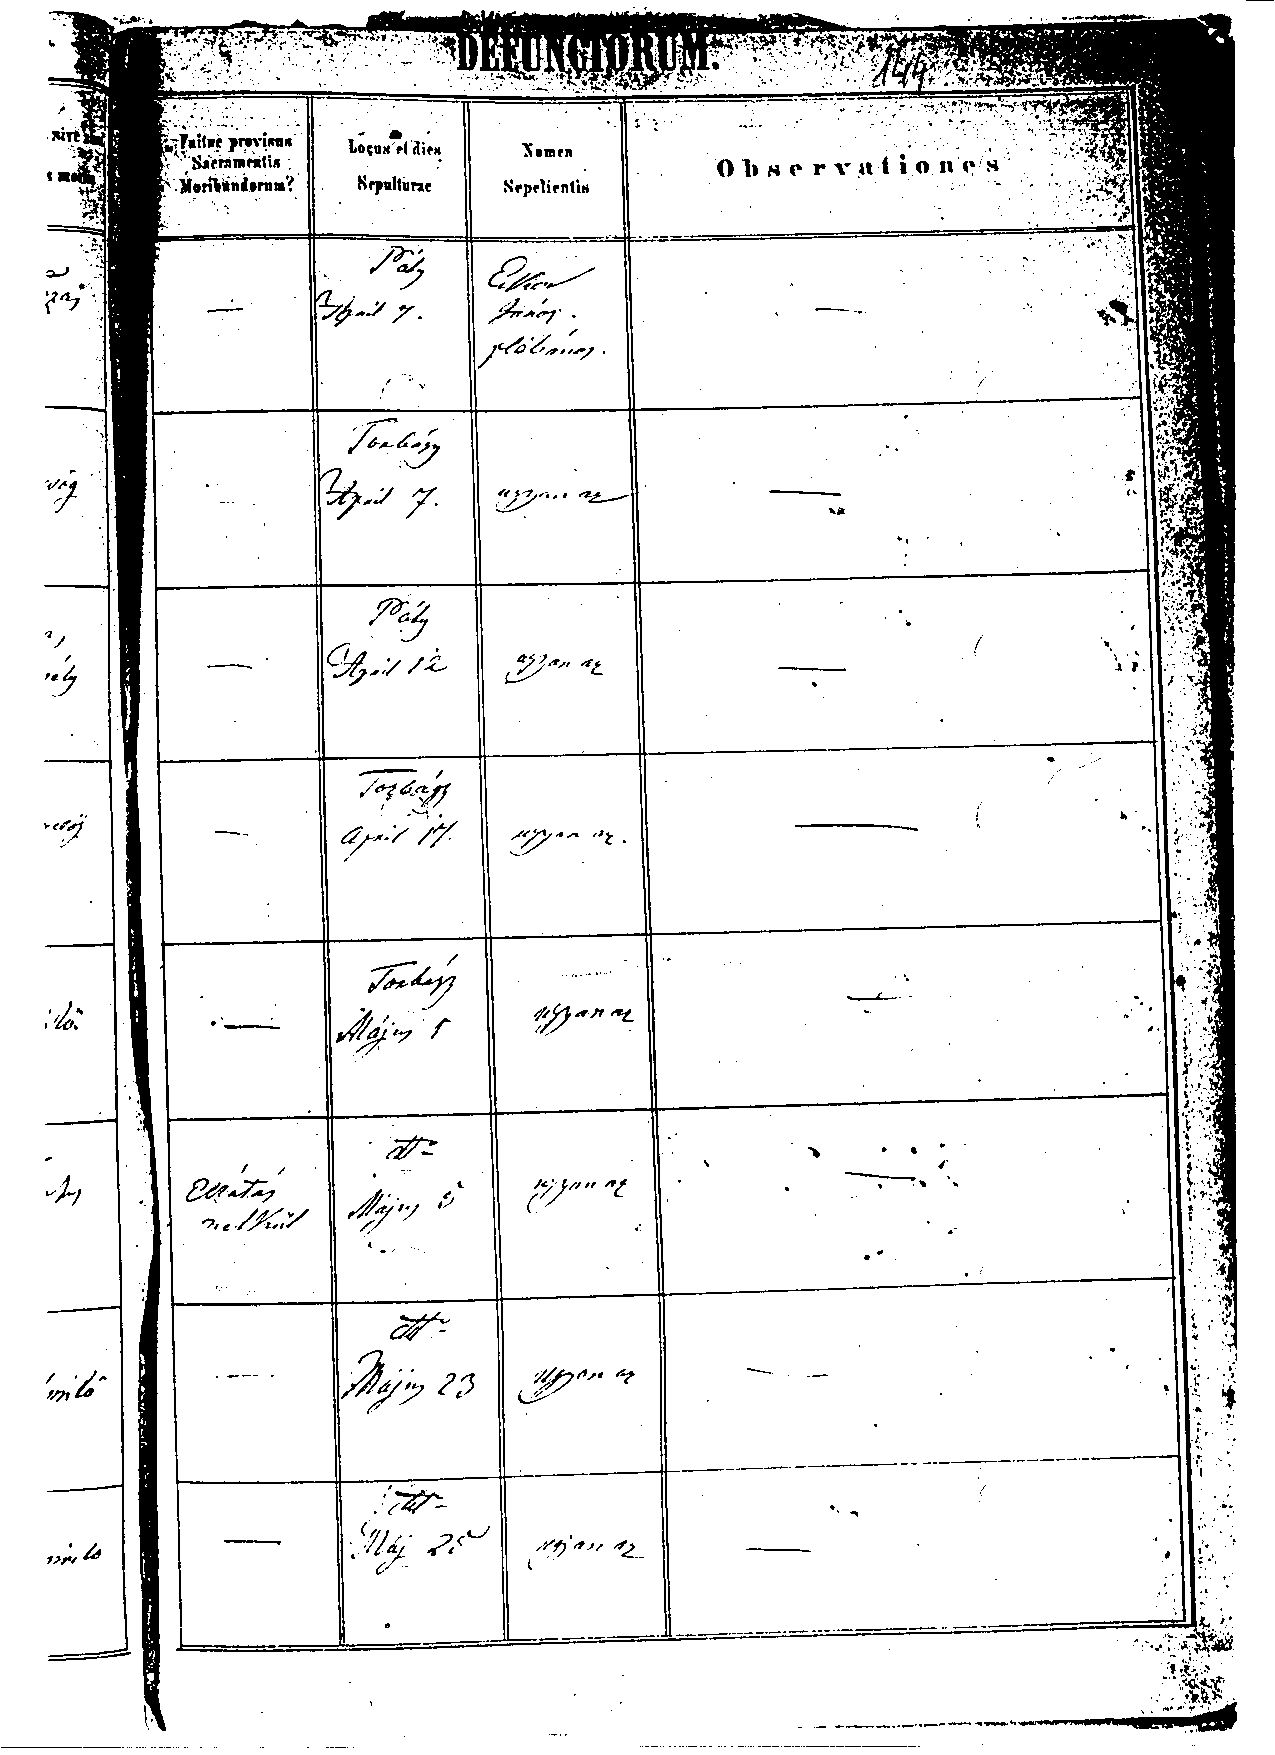 DEFUNCTORUM.
144.
Fuitne provisus
Sacramentis
Moribundorum?
Locus et dies
Sepulturae
Nomen
Sepelientis
Observationes
Páty
April 7.
János.
plébános.
—
—
Torbágy
April 7.
ugyan az
—
Páty
— April 12 ugyan az —
Torbágy
— April 17. ugyan az. —
Torbágy
— Május 1 ugyan az —
Ellátás
nélkül
Május 5 ugyan az —
— Május 23 ugyan az —
— Máj 25 ugyan az —